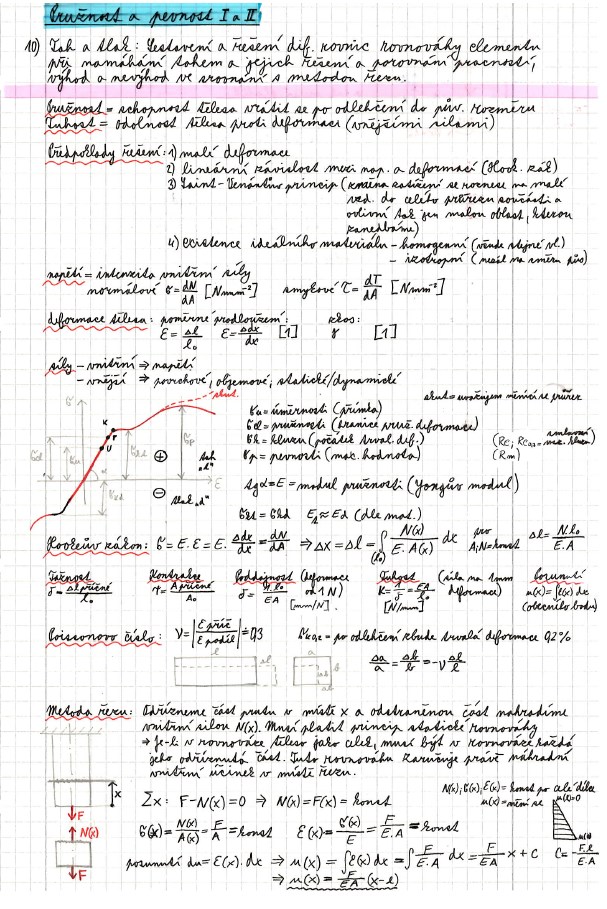 Pružnost a pevnost I a II
10) Tah a tlak: Sestavení a řešení dif. rovnic rovnováhy elementu
při namáhání tahem a jejich řešení a porovnání pracností,
výhod a nevýhod ve srovnání s metodou řezu.
Pružnost = schopnost tělesa vrátit se po odlehčení do pův. rozměru
Tuhost = odolnost tělesa proti deformaci (vnějšími silami)
Předpoklady řešení: 1) malé deformace
2) lineární závislost mezi nap. a deformací (Hook. zák)
3) Saint-Venantův princip (změna zatížení se roznese na malé
vzd. do celého průřezu součásti a
ovlivní tak jen malou oblast, kterou
zanedbáme)
4) existence ideálního materiálu - homogenní (všude stejné vl.)
- izotropní (nezál na směru půs)
napětí = intenzita vnitřní síly
normálové σ = dN/dA [Nmm⁻²] smykové τ = dT/dA [Nmm⁻²]
deformace tělesa: poměrné prodloužení: zkos:
ε = Δl/l₀ ε = Δdx/dx [1] γ [1]
síly - vnitřní ⇒ napětí
- vnější ⇒ povrchové, objemové, statické/dynamické
skut.
skut = uvažujem měnící se průřez
σ K P U σd σu σk σp α ε
⊕ tah "t"
⊖ tlak "d"
σu = úměrnosti (přímka)
σd = pružnosti (hranice pruž. deformace)
σk = kluzu (počátek trval. def.) (Re; Re₀,₂ = smluvní mez. kluzu)
σp = pevnosti (max. hodnota) (Rm)
tgα = E = modul pružnosti (Youngův modul)
σkt = σkd Et ≈ Ed (dle mat.)
Hookeův zákon: σ = E.ε = E. Δdx/dx = dN/dA ⇒ Δx = Δl = ∫(l₀) N(x)/E.A(x) dx pro A;N=konst Δl = N.l₀/E.A
Tažnost Kontrakce Poddajnost (deformace od 1N) Tuhost (síla na 1mm deformace) posunutí
δ = Δl příčné/l₀ ψ = A příčné/A₀ δ = 1.l₀/EA [mm/N] K = 1/δ = EA/l₀ [N/mm] u(x) = ∫ε(x) dx
(obecného bodu)
Poissonovo číslo: ν = |ε příč/ε podél| ≐ 0,3 = po odlehčení zbude trvalá deformace 0,2%
l Δl Δa Δb a b
Δa/a = Δb/b = -ν Δl/l
Metoda řezu: Odřízneme část prutu v místě x a odstraněnou část nahradíme
vnitřní silou N(x). Musí platit princip statické rovnováhy
⇒ je-li v rovnováze těleso jako celek, musí být v rovnováze každá
jeho odříznutá část. Tuto rovnováhu zaručuje právě náhradní
vnitřní účinek v místě řezu.
N(x); σ(x); ε(x) = konst po celé délce
u(x) = mění se u(x)=0
x F N(x) F
Σx: F-N(x)=0 ⇒ N(x)=F(x)= konst
σ(x) = N(x)/A(x) = F/A = konst ε(x) = σ(x)/E = F/E.A = konst
u(x)
posunutí du = ε(x).dx ⇒ u(x) = ∫ε(x) dx = ∫ F/E.A dx = F/EA x + C C = -F.l/E.A
⇒ u(x) = F/EA (x-l)